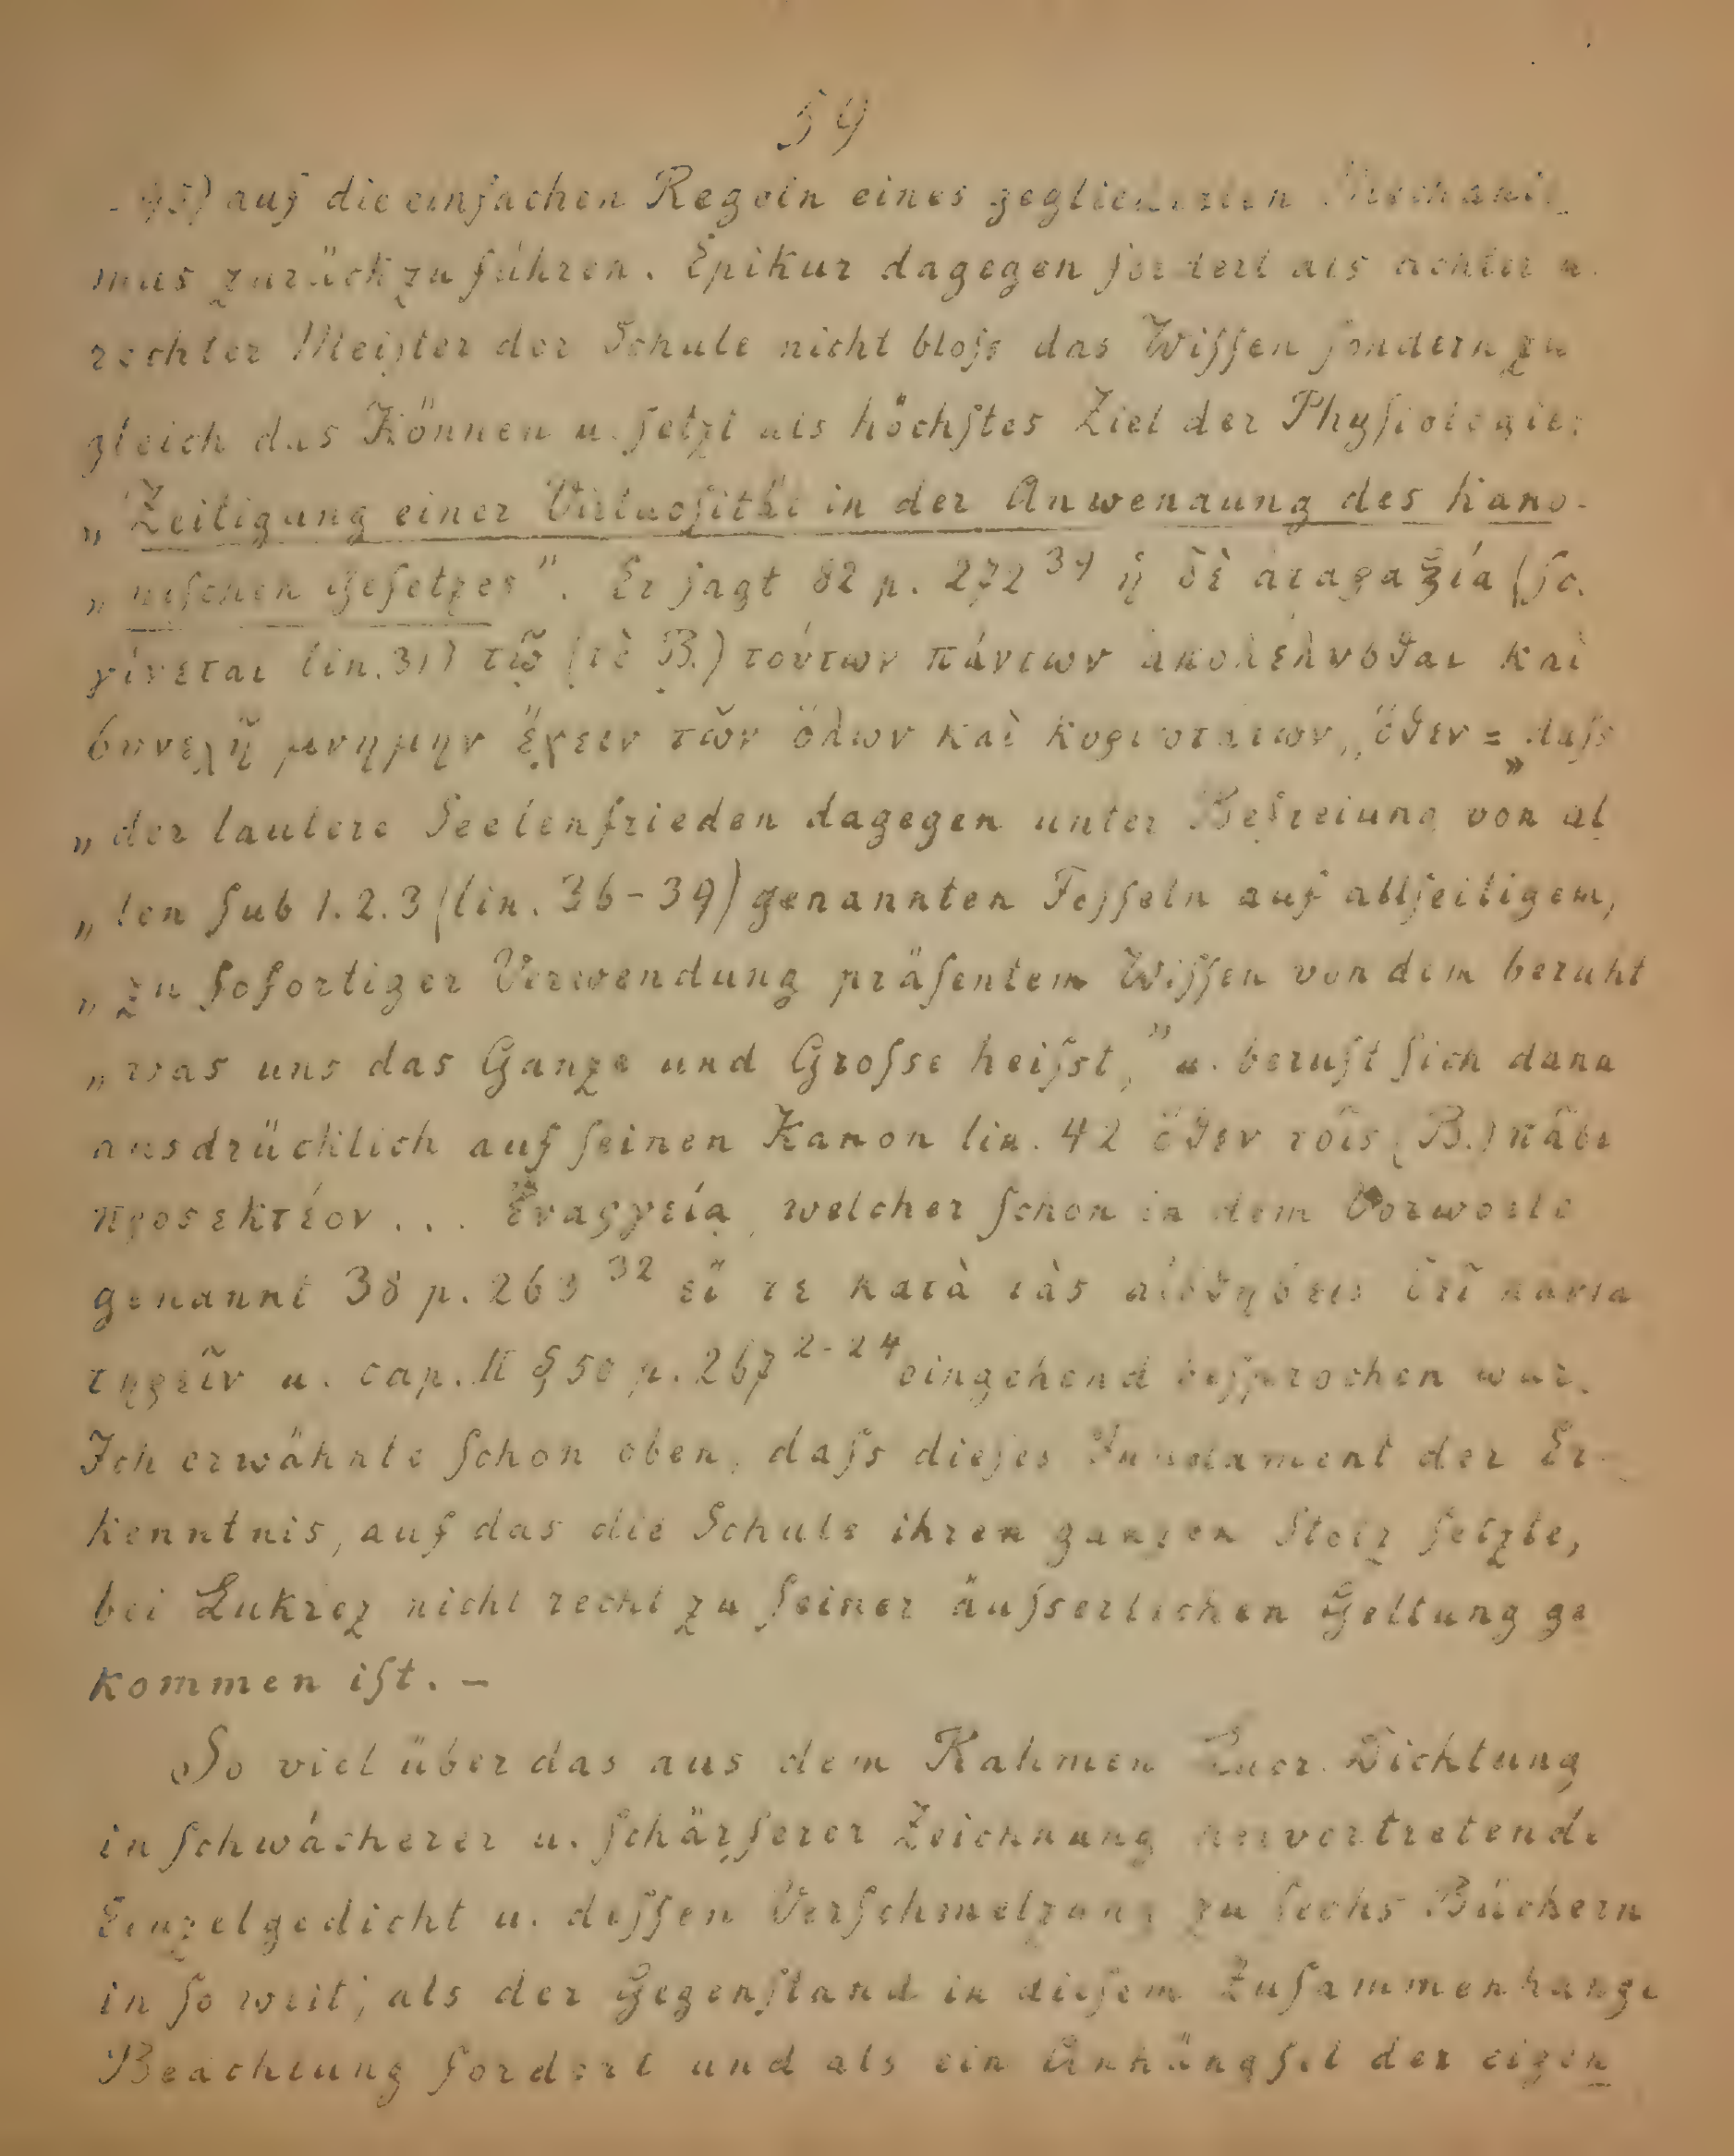 59
-45) auf die einfachen Regeln eines gegliederten Mechanis
mus zurückzuführen. Epikur dagegen fordert als echter u.
rechter Meiſter der Schule nicht bloſs das Wiſſen ſondern zu
gleich das Können u. ſetzt als höchſtes Ziel der Phyſiologie:
„Zeitigung einer Virtuoſität in der Anwendung des kano-
„niſchen Geſetzes". Er ſagt 82 p. 272 ἡ δὲ ἀταραξία (ſc.
γίνεται lin. 31) τῷ (τὸ B.) τούτων πάντων ἀπολελύσθαι καὶ
συνεχῆ μνημην ἔχειν τῶν ὅλων καὶ κυριωτάτων, ὅθεν = „daſs
„der lautere Seelenfrieden dagegen unter Befreiung von al
„len ſub 1. 2. 3 (lin. 36-39) genannten Feſſeln auf allſeitigem,
„zu ſofortiger Verwendung präſentem Wiſſen von dem beruht
„was uns das Ganze und Groſse heiſst," u. beruft ſich dann
ausdrücklich auf ſeinen Kanon lin. 42 ὅθεν τοῖς (B.) πᾶσι
προσεκτέον . . . Ἐναργείᾳ, welcher ſchon in dem Vorworte
genannt 38 p. 263 32 εἴ τε κατὰ τὰς αἰσθήσεις δεῖ πάντα
τηρεῖν u. cap. II § 50 p. 267 2-24 eingehend beſprochen war.
Ich erwähnte ſchon oben, daſs dieſes Fundament der Er-
kenntnis, auf das die Schule ihren ganzen Stolz ſetzte,
bei Lukrez nicht recht zu ſeiner äuſserlichen Geltung ge
kommen iſt. –
So viel über das aus dem Rahmen Lucr. Dichtung
in ſchwächerer u. ſchärferer Zeichnung hervortretende
Einzelgedicht u. deſſen Verſchmelzung zu ſechs Büchern
in ſo weit, als der Gegenſtand in dieſem Zuſammenhange
Beachtung fordert und als ein Anhängſel der eigen